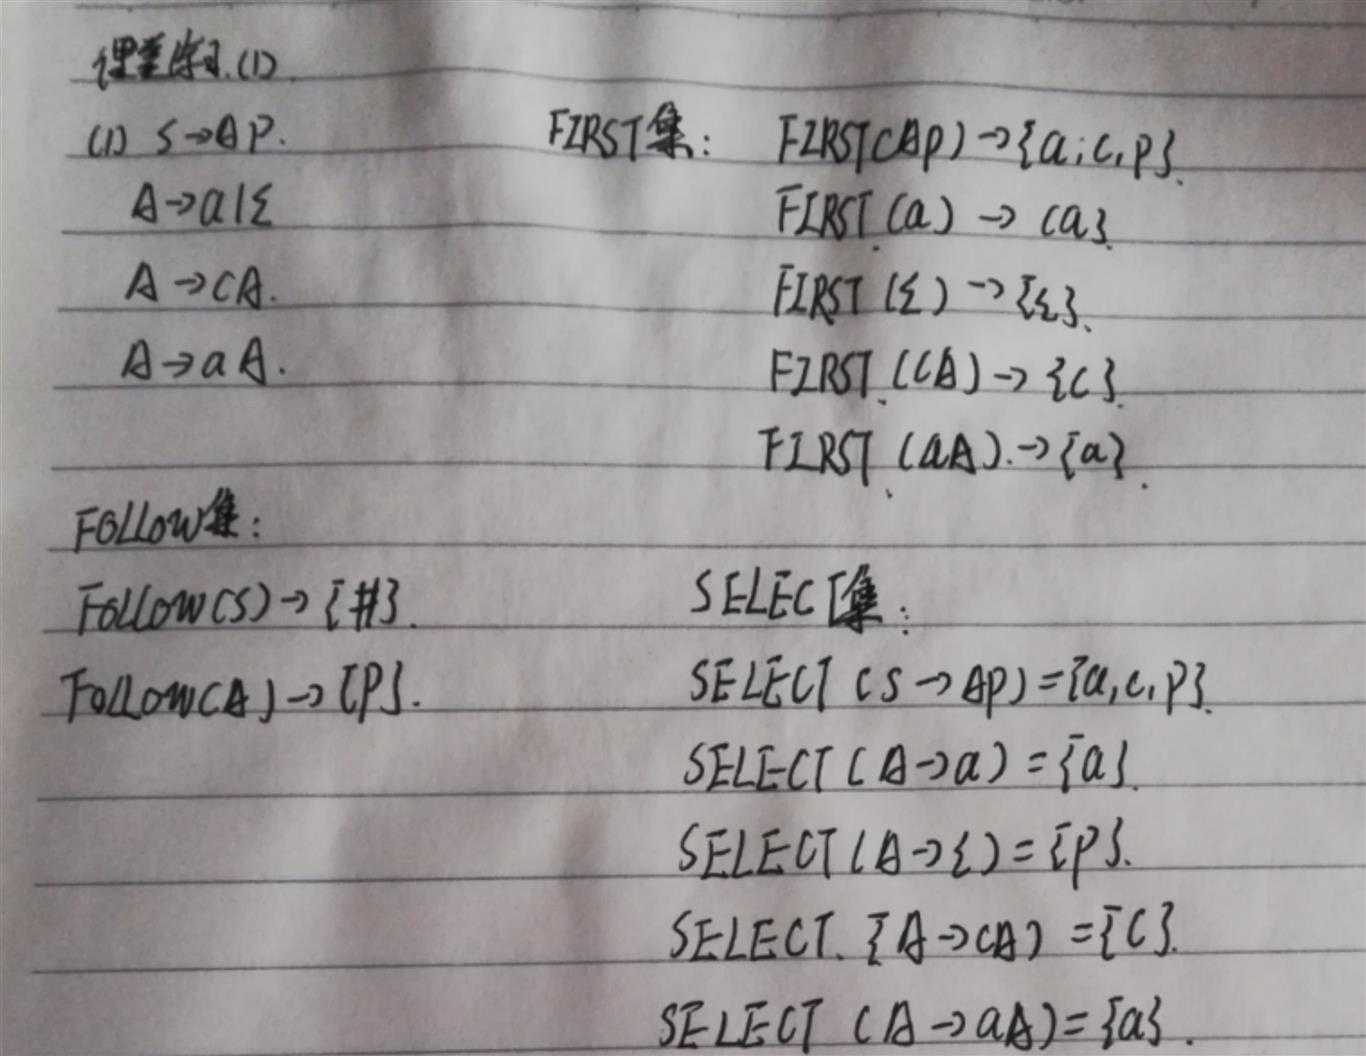 课堂练习.(1)
(1) S→AP.
A→a|ε
A→CA.
A→aA.
FIRST集: FIRST(AP)→{a,c,p}.
FIRST(a)→{a}.
FIRST(ε)→{ε}.
FIRST(CA)→{C}.
FIRST(aA).→{a}.
FOLLOW集:
FOLLOW(S)→{#}.
FOLLOW(A)→{P}.
SELECT集:
SELECT(S→AP)={a,c,p}.
SELECT(A→a)={a}.
SELECT(A→ε)={P}.
SELECT.{A→CA)={C}.
SELECT(A→aA)={a}.